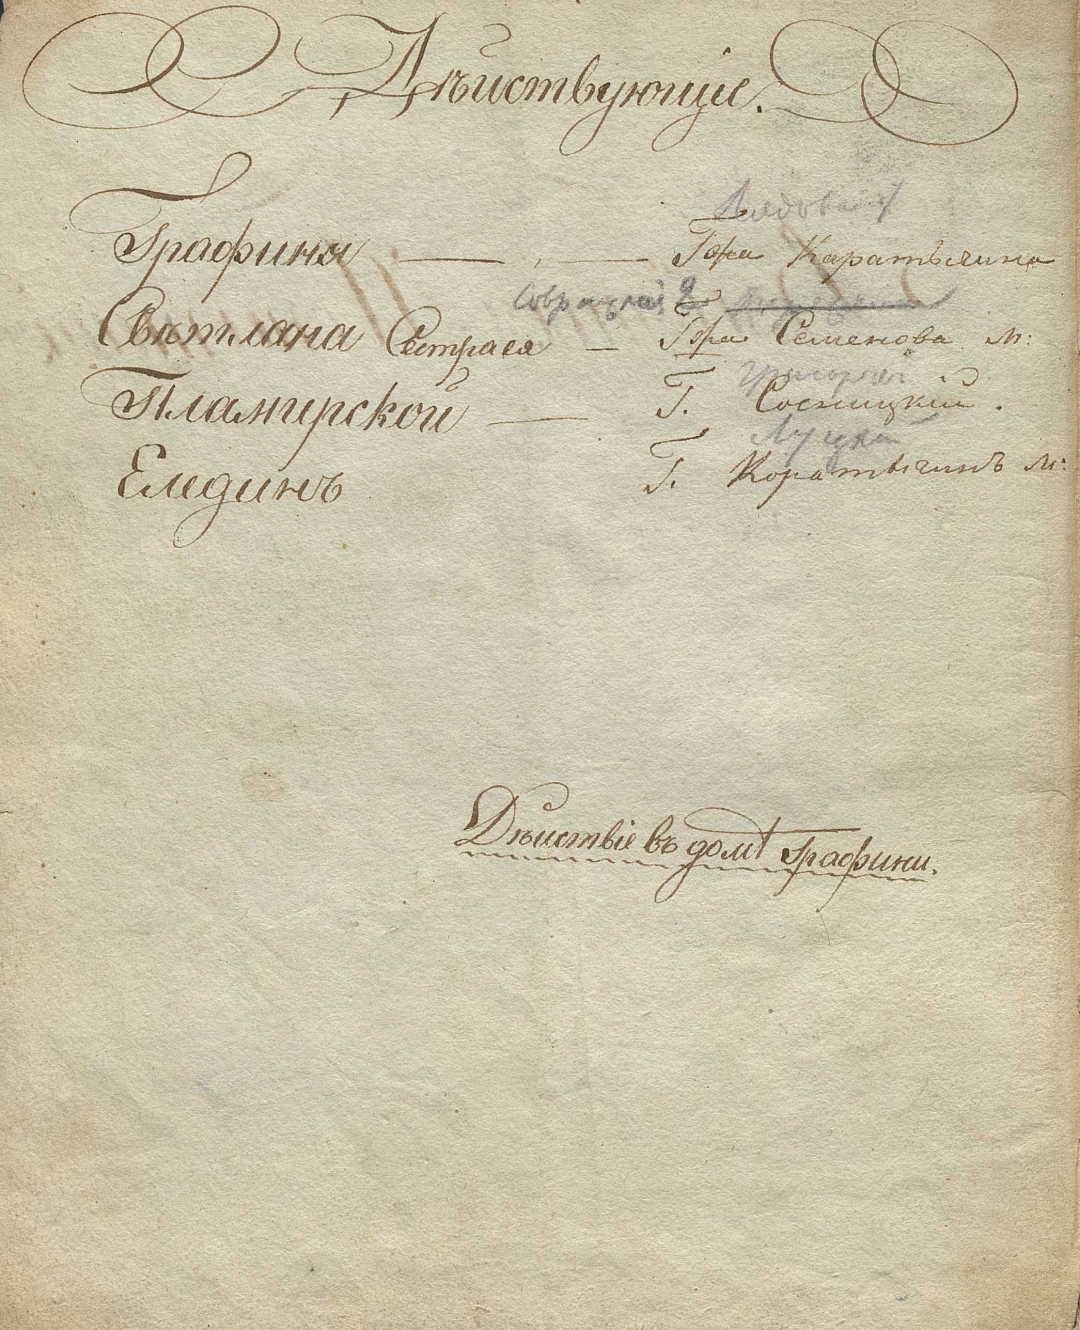 Дѣйствующіе.
Графиня — Гжа Каратыгина
Свѣтлана Сестра ея — Гжа Семенова м:
Пламирской — Г. Сосницкій.
Елединъ Г. Коратыгинъ м:
Дѣйствіе въ домѣ Графини.